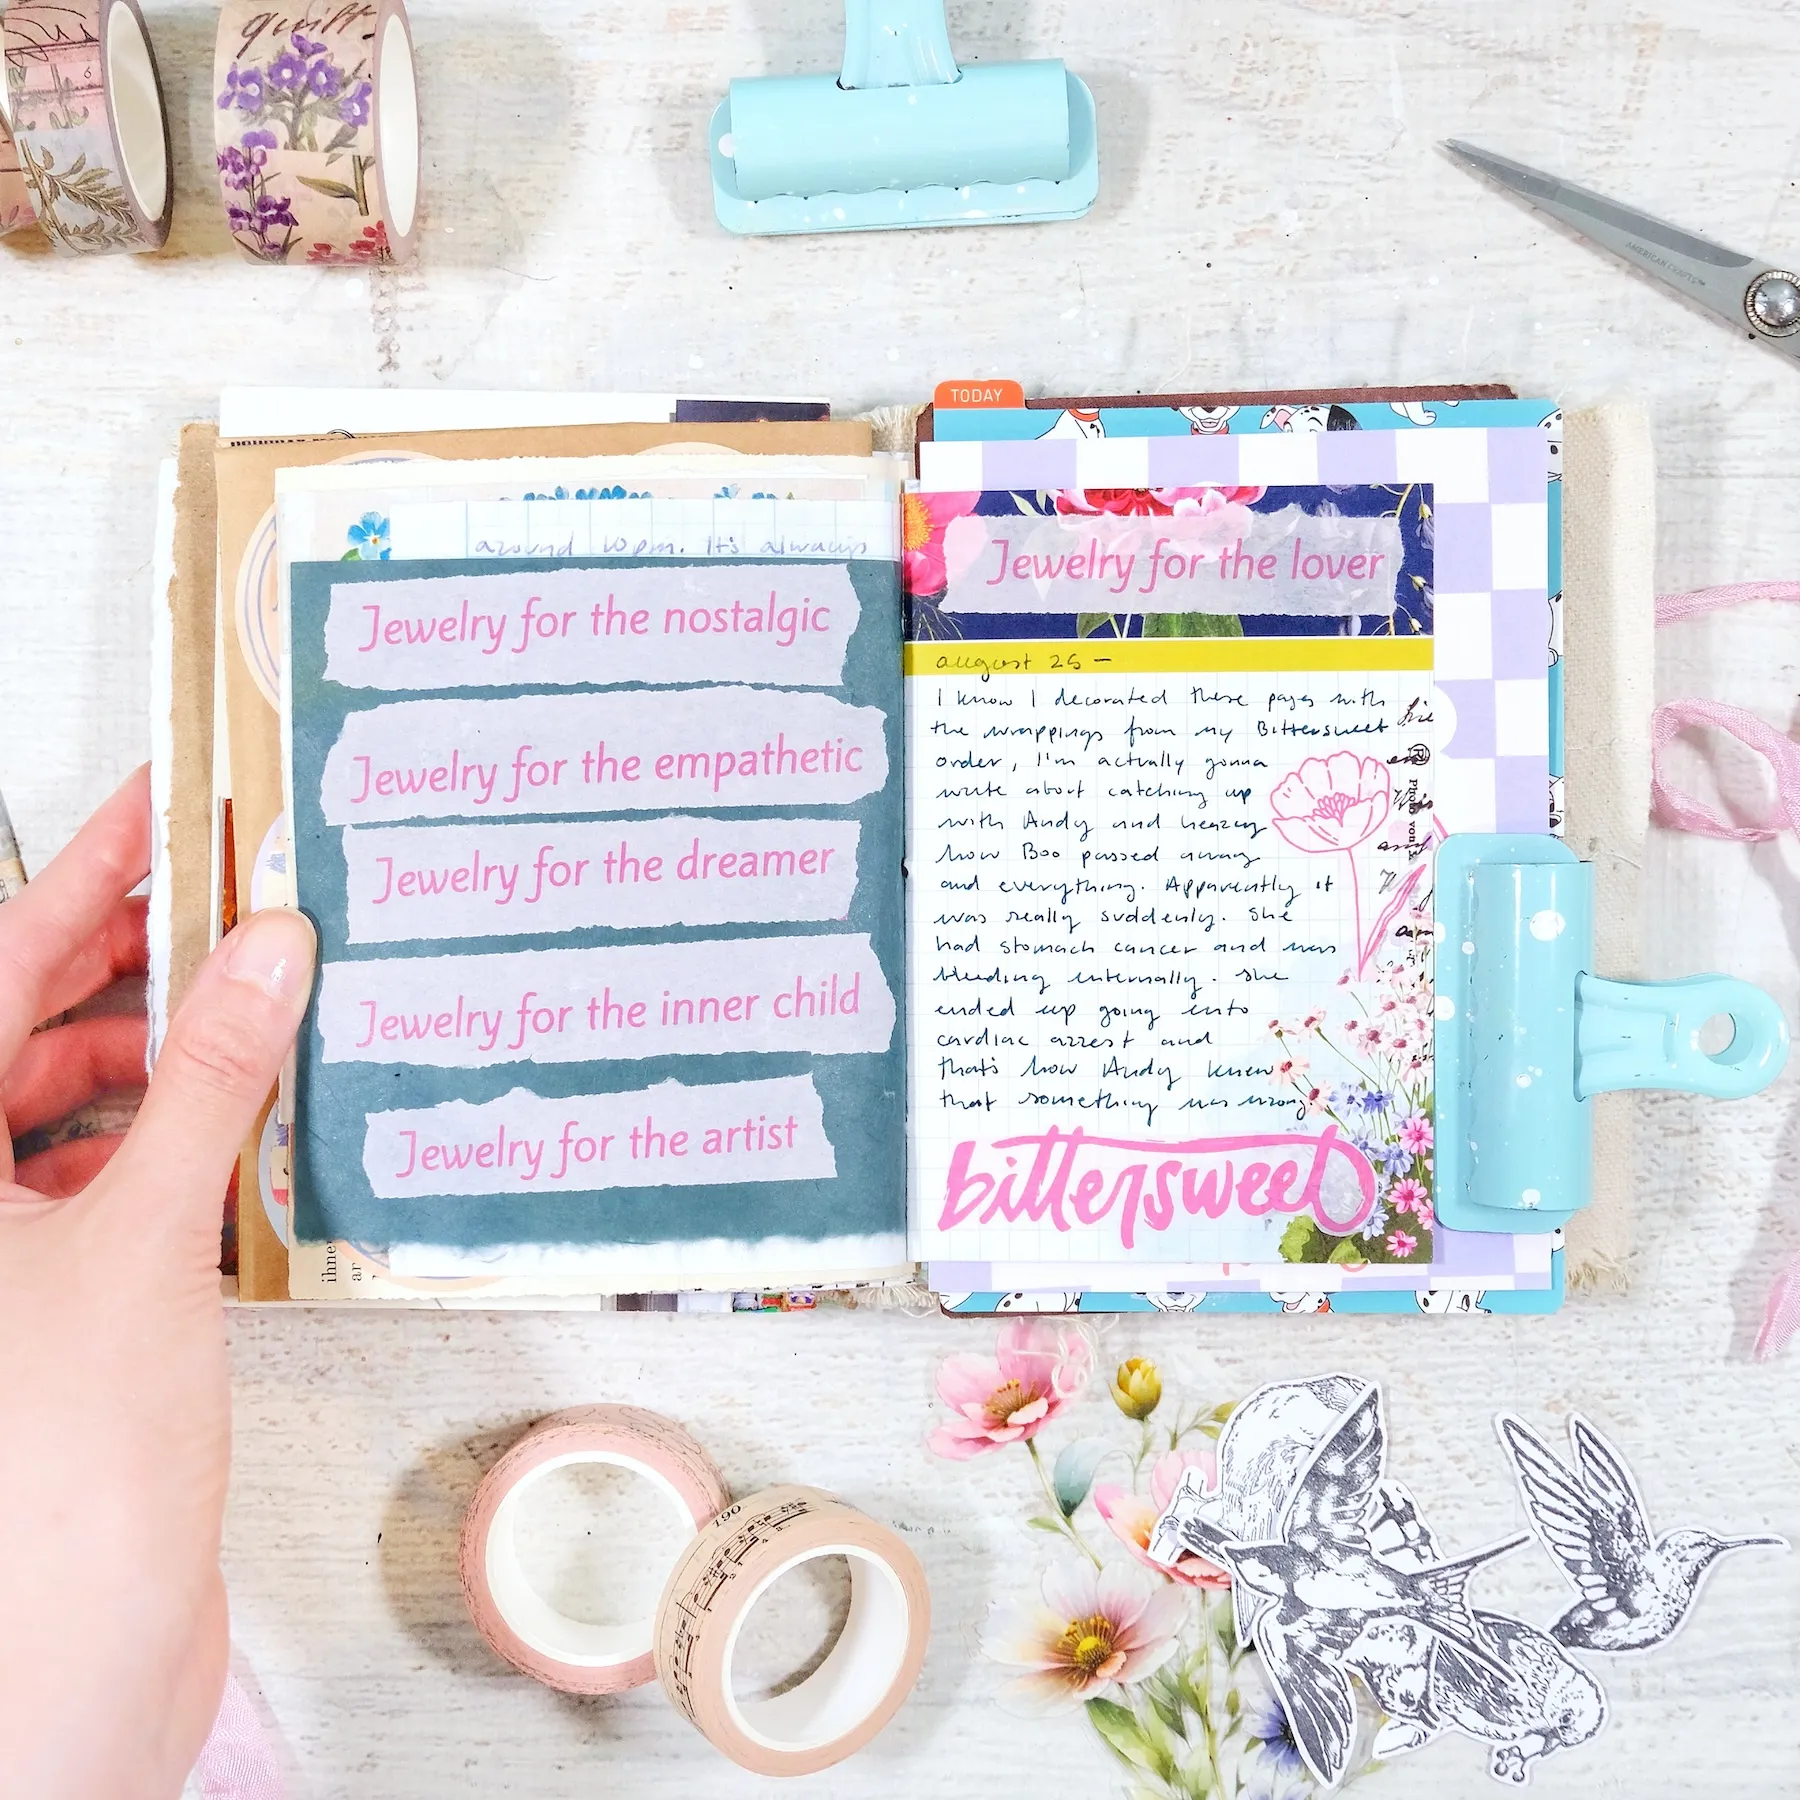 quitt
AMERICAN CRAFTS™
TODAY
around 10pm. It's always
Jewelry for the nostalgic
Jewelry for the empathetic
Jewelry for the dreamer
Jewelry for the inner child
Jewelry for the artist
ihne
ar
Jewelry for the lover
august 25 –
I know I decorated these pages with
the wrappings from my Bittersweet
order, I'm actually gonna
write about catching up
with Andy and hearing
how Boo passed away
and everything. Apparently it
was really suddenly. She
had stomach cancer and was
bleeding internally. She
ended up going into
cardiac arrest and
that's how Andy knew
that something was wrong.
bittersweet
Photo von
190